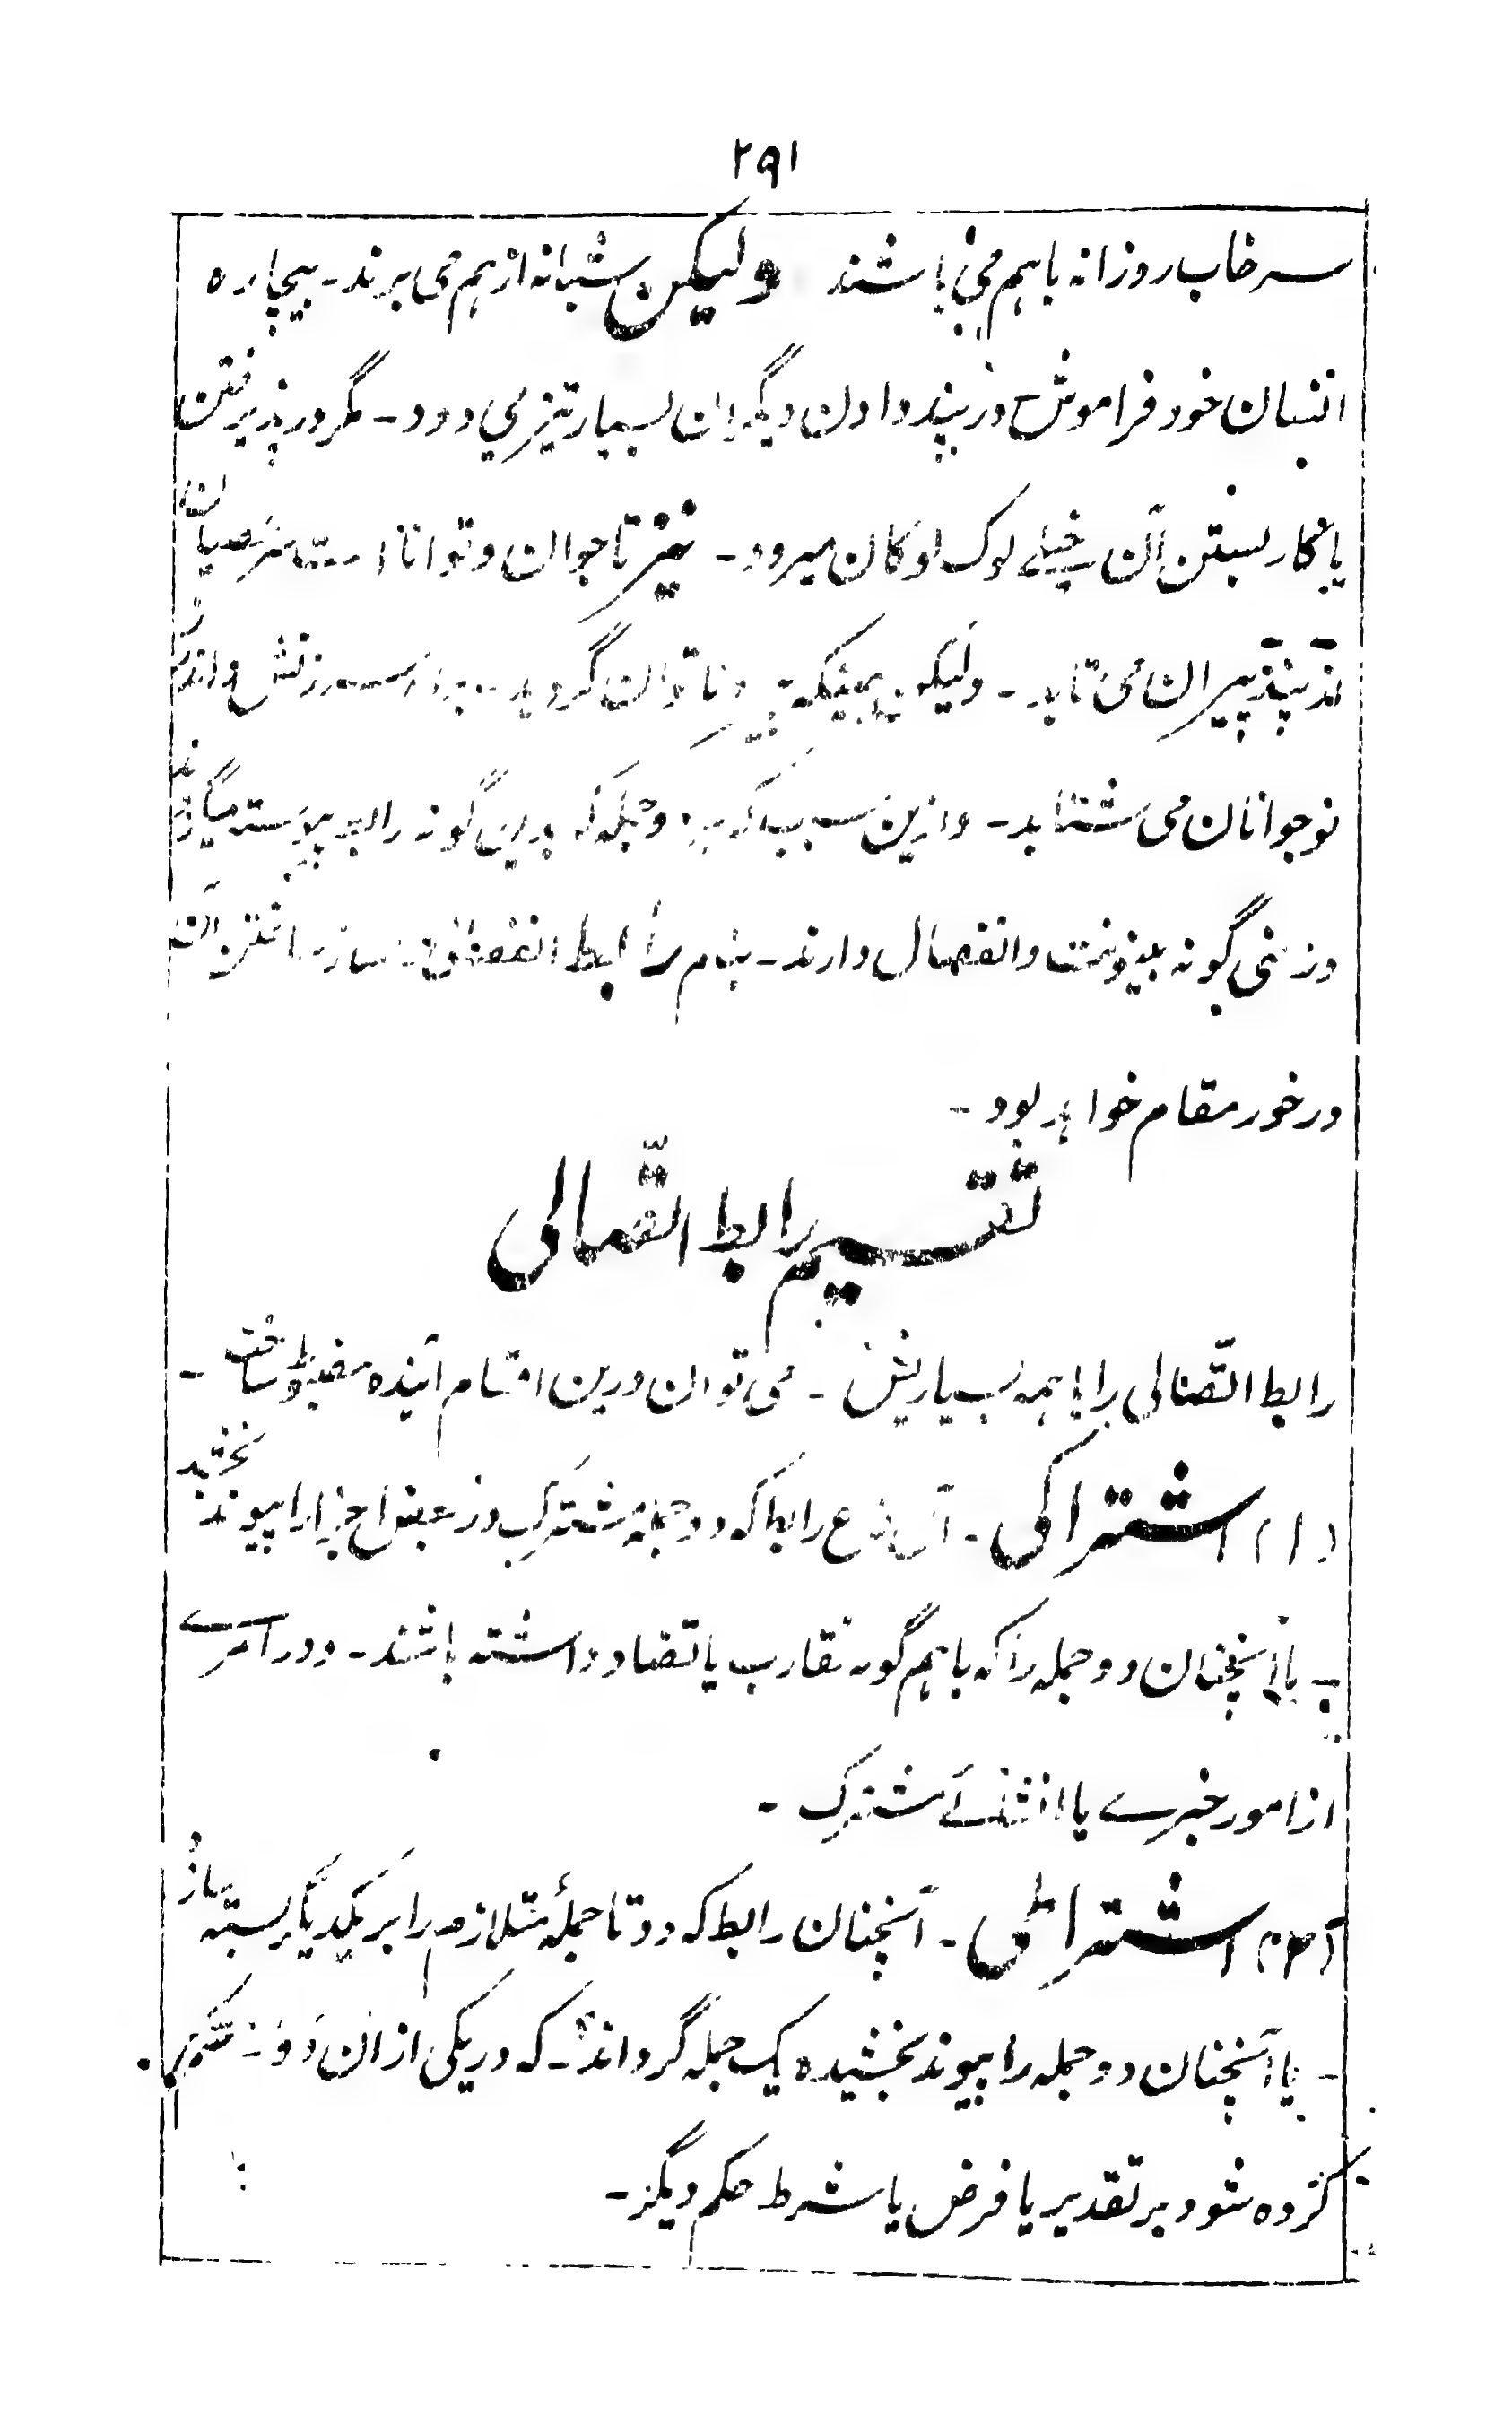 ۲۹۱
سرخاب روزانه باهم می باشند ولیکن شبانه ازهم می برند۔ بیچاره
انسان خود فراموش در پند دادن دیگران بسیار تیز می دود۔ مگر در پذیرفتن
یا بکار بستن آن خیلے لوک لوکان میرود۔ نیز تا جوان و توانا است سر
پند پیران می تابد۔ ولیکن همینکه و ناتوان گردید۔ سرزنش و اندرز
نوجوانان می شتابد۔ و ازین سبب که دو جمله که بدین گونه رابط پیوسته میگردند
در معنی گونه بینونت و انفصال دارند۔ بنام رابط انفصالی ساختن آن
درخور مقام خواهد بود۔
تقسیم رابط اتّصالی
رابط اتّصالی را با همه بسیاریش۔ می توان درین اقسام آینده مضبوط ساخت۔
(۱) اشتراکی۔ آن نوع رابط که دو جملهٔ مشترک در بعض اجزا را پیوند بخشد
۔ یا آنچنان دو جمله را که باهم گونه تقارب یا تضاد داشته باشند۔ و در امرے
از امور خبرے یا انشائے مشترک۔
(۲) اشتراطی۔ آنچنان رابط که دو تا جملهٔ متلازم را بر یکدیگر بسته سازد
۔ یا آنچنان دو جمله را پیوند بخشیده یک جمله گرداند۔ که در یکی از ان دو۔ حکم
کرده شود بر تقدیر یا فرض یا شرط حکم دیگر۔